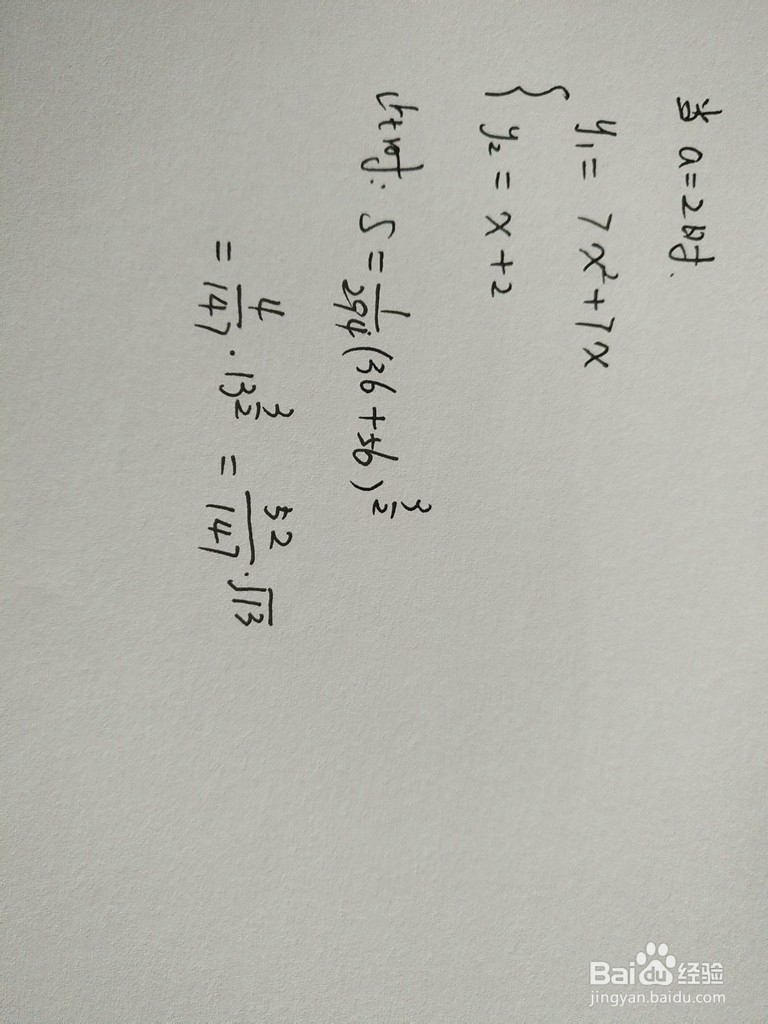 当 a=2时.
y₁ = 7x²+7x
{ y₂ = x+2
此时: S = 1/294 (36+56)^(3/2)
= 4/147 · 13^(3/2) = 52/147 · √13
Baidu 经验
jingyan.baidu.com